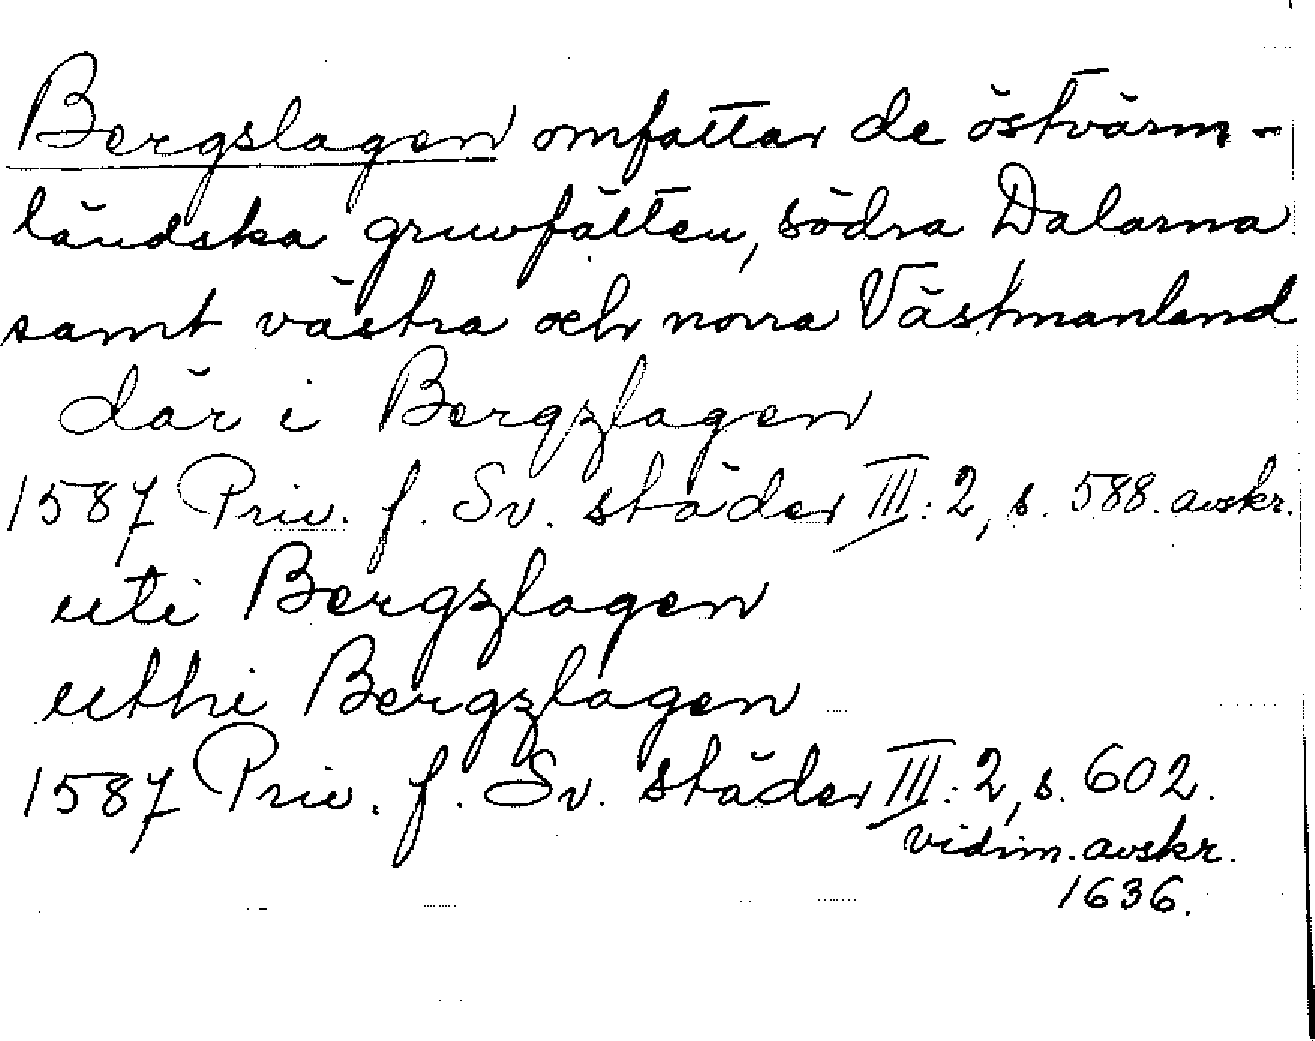 Bergslagen omfattar de östvärm-
ländska gruvfälten, södra Dalarna
samt västra och norra Västmanland
där i Bergzlagen
1587 Priv. f. Sv. städer III: 2, s. 588. avskr.
uti Bergzlagen
uthi Bergzlagen
1587 Priv. f. Sv. städer III: 2, s. 602.
vidim. avskr.
1636.